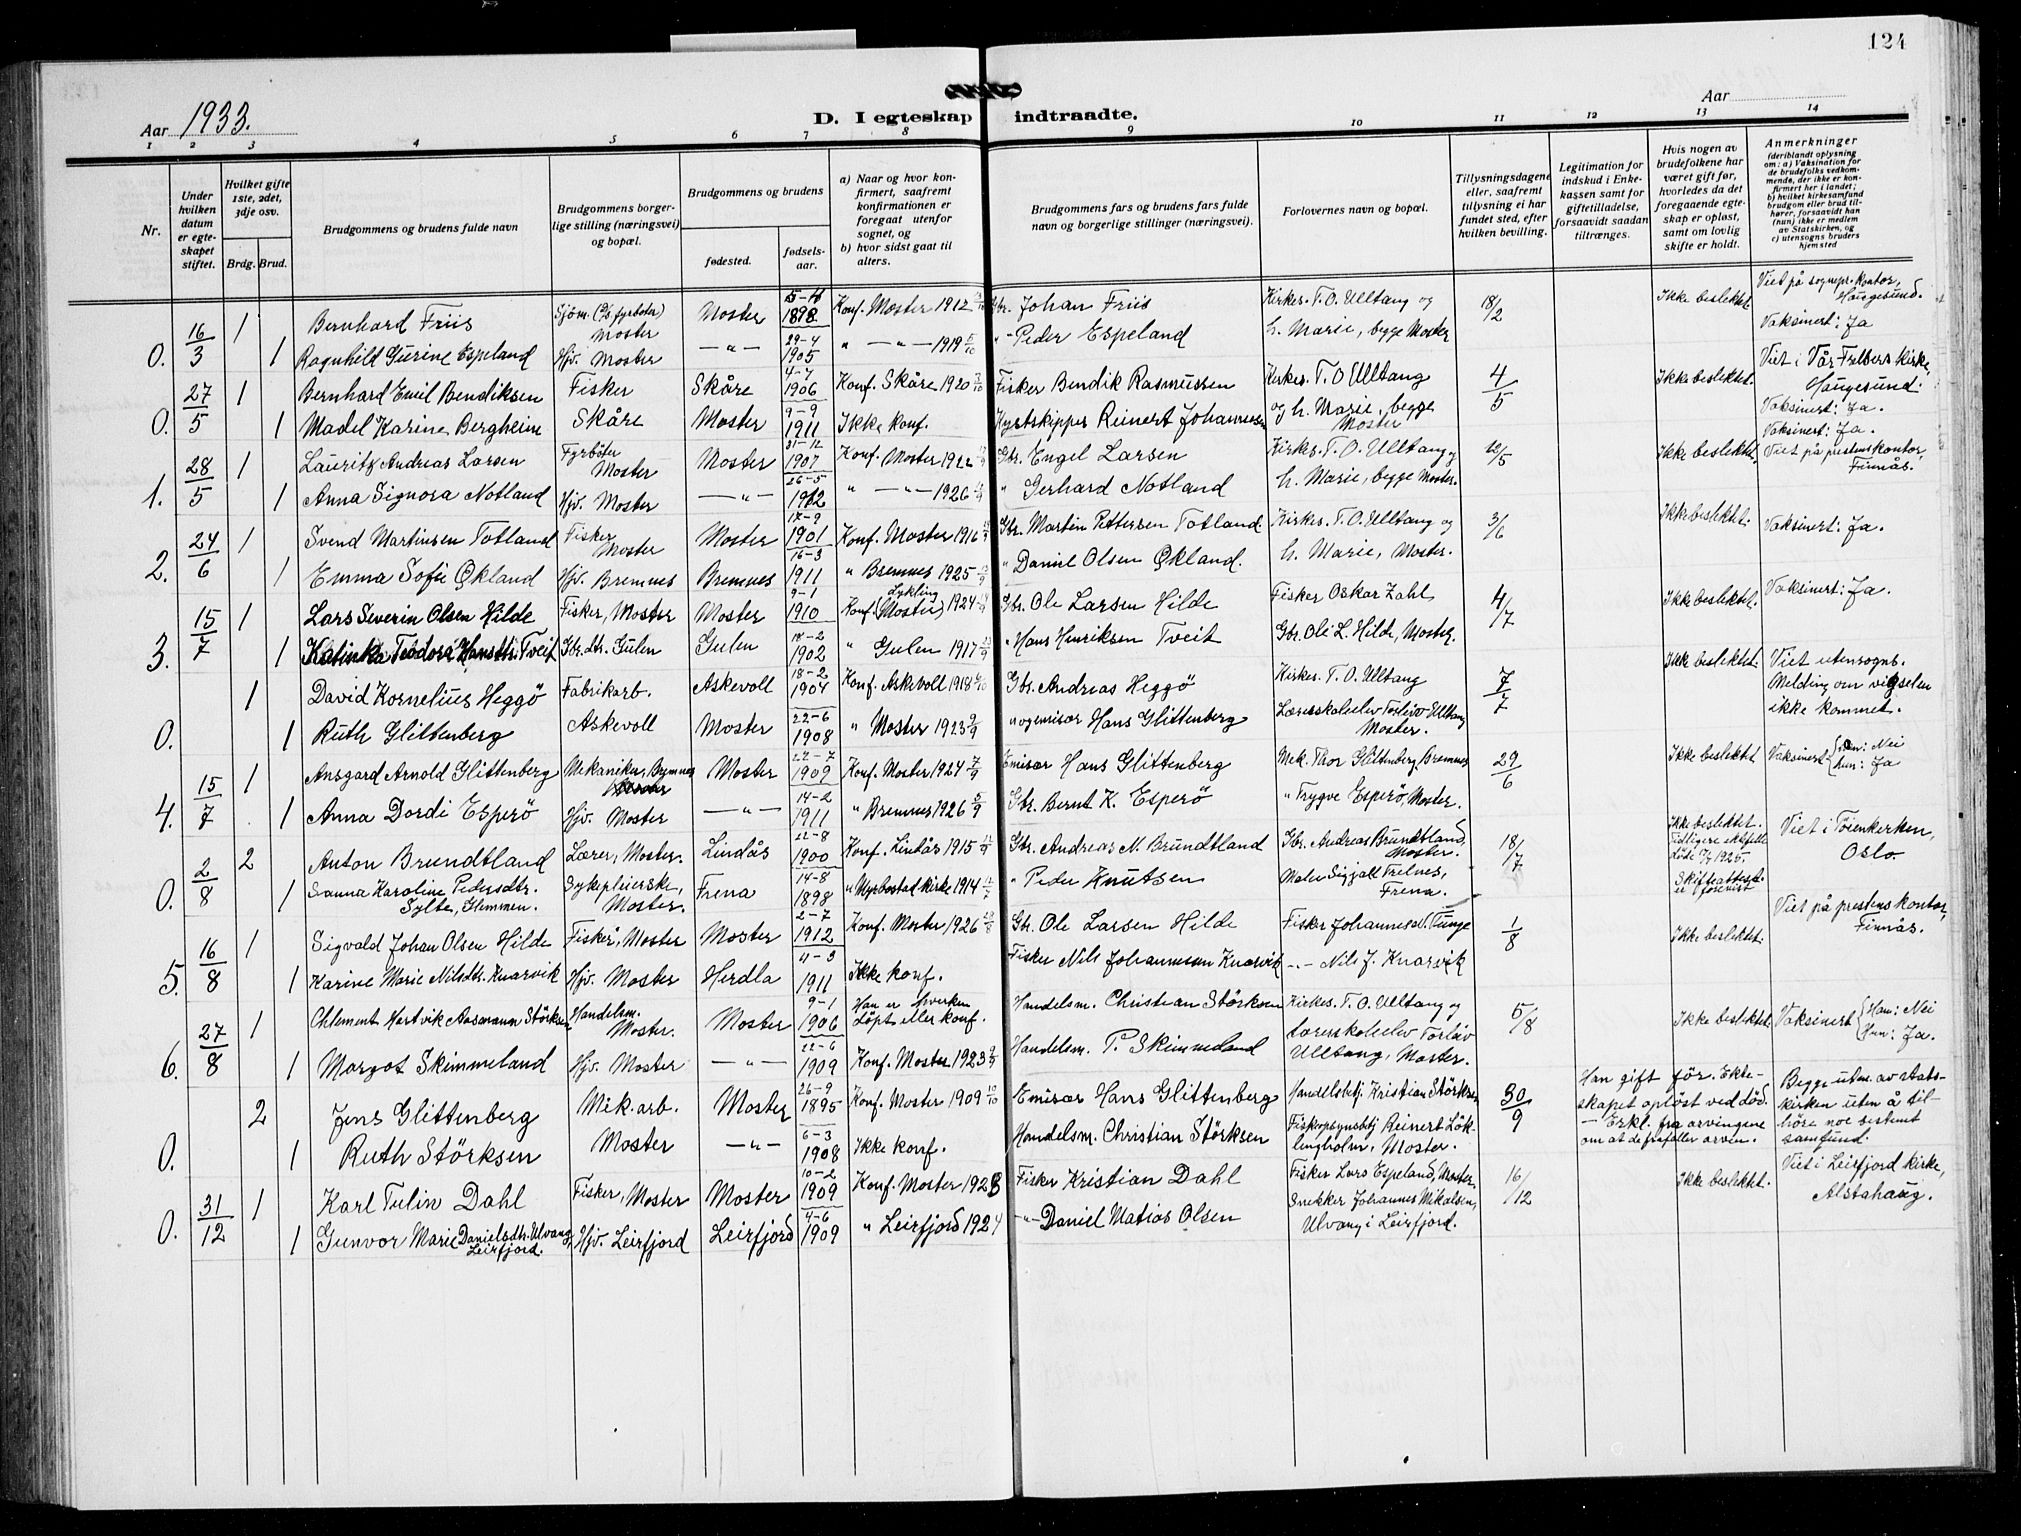 124
Aar 1933.
D. I egteskap indtraadte.
Aar
1 2 3 4 5 6 7 8 9 10 11 12 13 14
Nr.
Under hvilken datum er egteskapet stiftet.
Hvilket gifte 1ste, 2det, 3dje osv.
Brdg. Brud.
Brudgommens og brudens fulde navn
Brudgommens borgerlige stilling (næringsvei) og bopæl.
Brudgommens og brudens
fødested. fødselsaar.
a) Naar og hvor konfirmert, saafremt konfirmationen er foregaat utenfor sognet, og
b) hvor sidst gaat til alters.
Brudgommens fars og brudens fars fulde navn og borgerlige stillinger (næringsvei).
Forlovernes navn og bopæl.
Tillysningsdagene eller, saafremt tillysning ei har fundet sted, efter hvilken bevilling.
Legitimation for indskud i Enkekassen samt for giftetilladelse, forsaavidt saadan tiltrænges.
Hvis nogen av brudefolkene har været gift før, hvorledes da det foregaaende egteskap er opløst, samt om lovlig skifte er holdt.
Anmerkninger
(deriblandt oplysning om: a) Vaksination for de brudefolks vedkommende, der ikke er konfirmert her i landet; b) hvilket kirkesamfund brudgom eller brud tilhører, forsaavidt han (hun) ikke er medlem av Statskirken, og c) utensogns bruders hjemsted
0. 16/3 1 Bernhard Friis Sjøm. Moster Moster 1898 Konf. Moster 1912 Gbr. Johan Friis Kirkes. T. O. Ulltang og 18/2 Ikke beslektet Viet på sognepr. kontor, Haugesund.
1 Ragnhild Gurine Espeland Hjv. Moster —"— 29-4 1905 " —"— 1919 " Peder Espeland h. Marie, begge Moster Vaksinert: Ja
0. 27/5 1 Bernhard Emil Bendiksen Fisker Skåre 4-7 1906 Konf. Skåre 1920 Fisker Bendik Rasmussen Kirkes. T. O Ulltang 4/5 Ikke beslektet. Viet i Vår Frelsers kirke, Haugesund.
1 Madel Karine Bergheim Skåre Moster 9-9 1911 Ikke konf. Kystskipper Reinert Johannesen og h. Marie, begge Moster Vaksinert: Ja.
1. 28/5 1 Lauritz Andreas Larsen Fyrbøter Moster Moster 21-12 1907 Konf. Moster 1922 Gbr. Engel Larsen Kirkes. T. O. Ulltang og 12/5 Ikke beslektet, Vaksinert: Ja. Viet på prestens kontor, Finnås.
1 Anna Signora Notland Hjv. Moster —"— 26-5 1912 " —"— 1926 " Gerhard Notland h. Marie, begge Moster.
2. 24/6 1 Svend Martinsen Totland Fisker Moster Moster 17-9 1901 Konf. Moster 1916 Gbr. Martin Pettersen Totland Kirkes. T. O. Ulltang og 3/6 Ikke beslektet. Vaksinert: Ja.
1 Emma Sofie Økland Hjv. Bremnes Bremnes 16-3 1911 " Bremnes 1925 " Daniel Olsen Økland. h. Marie, Moster.
3. 15/7 1 Lars Severin Olsen Hilde Fisker, Moster Moster 9-1 1910 Konf. Lykling (Moster) 1924 Gbr. Ole Larsen Hilde Fisker Oskar Zahl 4/7 Ikke beslektet. Vaksinert: Ja.
1 Katinka Teodora Hansdtr. Tveit Gbr. dtr. Gulen Gulen 1902 " Gulen 1917 " Hans Henriksen Tveit Gbr. Ole L. Hilde, Moster.
0. 1 David Kornelius Heggö Fabrikarb. Askevoll 18-2 1904 Konf. Askevoll 1918 Gbr. Andreas Heggö Kirkes. T. O. Ulltang 7/7 Ikke beslektet. Viet utensogns. Melding om vigselen ikke kommet.
1 Ruth Glittenberg Askevoll Moster 22-6 1908 " Moster 1923 " og emisær Hans Glittenberg Lærerskoleelev Torleiv Ulltang Moster.
4. 15/7 1 Ansgard Arnold Glittenberg Mekaniker, Bremnes Moster 22-7 1909 Konf. Moster 1924 7/9 Emisær Hans Glittenberg Mek. Thor Glittenberg, Bremnes 29/6 Ikke beslektet Vaksinert {Han: Nei Hun: Ja
1 Anna Dordi Esperö Hjv. Moster —"— 14-2 1911 " Bremnes 1926 5/9 Gbr. Bernt K. Esperö " Trygve Esperö, Moster.
0. 2/8 2 Anton Brundtland Lærer, Moster. Lindås 22-8 1900 Konf. Lindås 1915 Gbr. Andreas M. Brundtland Gbr. Andreas Brundtland, Moster. 18/7 Ikke beslektet. Tidligere ekteskap løst 1925. Skifteattest er forevist Viet i Töienkirken, Oslo.
1 Sanna Karoline Pedersdtr. Sylte, Glemmen. Sykepleierske, Moster. Fræna 14-8 1898 " Myrbostad kirke 1914 " Peder Knutsen Maler Sigjall Trelnes, Fræna.
5. 16/8 1 Sigvald Johan Olsen Hilde Fisker, Moster Moster 2-7 1912 Konf. Moster 1926 Gbr. Ole Larsen Hilde Fisker Johannes Tunge 1/8 Ikke beslektet. Viet på prestens kontor, Finnås.
1 Karine Marie Nilsdtr. Knarvik Hjv. Moster Herdla 4-3 1911 Ikke konf. Fisker Nils Johannesen Knarvik —"— Nils J. Knarvik
6. 27/8 1 Chlement Hartvik Aasmann Störksen Handelsm. Moster. Moster 9-1 1906 Han er hverken døpt eller konf. Handelsm. Christian Störksen Kirkes. T. O. Ulltang og 5/8 Ikke beslektet. Vaksinert {Han: Nei Hun: Ja.
1 Margot Skimmeland Hjv. Moster —"— 22-6 1909 Konf. Moster 1923 Handelsm. P. Skimmeland Lærerskoleelev Torleiv Ulltang, Moster.
0. 2 Jens Glittenberg Mek. arb. Moster 26-9 1895 Konf. Moster 1909 10/10 Emisær Hans Glittenberg Handelsbetj. Kristian Störksen 30/9 Han gift för. Ekteskapet opløst ved död. — Erkl. fra arvingene om at de frafaller arven. Begge utm. av statskirken uten å tilhöre noe bestemt samfund.
1 Ruth Störksen Moster —"— 6-3 1908 Ikke konf. Handelsm. Christian Störksen Fiskopsynsbtj Reinert Löklingholm, Moster.
0. 31/12 1 Karl Tulin Dahl Fisker, Moster Moster 10-2 1909 Konf. Moster 1923 Fisker Kristian Dahl Fisker Lars Espeland, Moster 16/12 Ikke beslektet. Viet i Leirfjord kirke, Alstahaug.
1 Gunvor Marie Danielsdtr. Ulvang, Leirfjord. Hjv. Leirfjord Leirfjord 4-6 1909 " Leirfjord 1924 —"— Daniel Matias Olsen Snekker Johannes Nikolsen, Ulvang i Leirfjord.